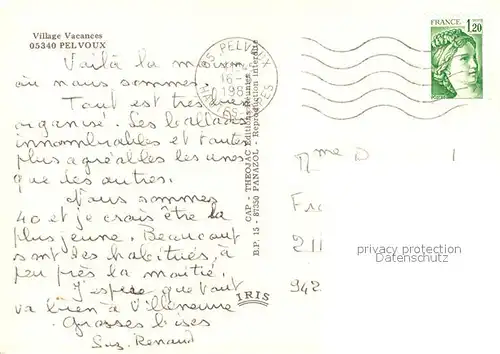 Village Vacances
05340 PELVOUX
Voilà la maison
où nous sommes.
Tout est très bien
organisé. Les ballades
innombrables et toutes
plus agréables les unes
que des autres.
Nous sommes
40 et je crois être la
plus jeune. Beaucoup
sont des habitués, à
peu près la moitié.
J'espère que tout
va bien à Villeneuve
Grosses bises
Suz. Renaud
CAP - THEOJAC Editions Réunies
B.P. 15 - 87350 PANAZOL - Reproduction interdite
IRIS
05 PELVOUX
16 -
HAUTES ALPES
FRANCE
1,20
Mme D
Fr
211
942
privacy protection
Datenschutz